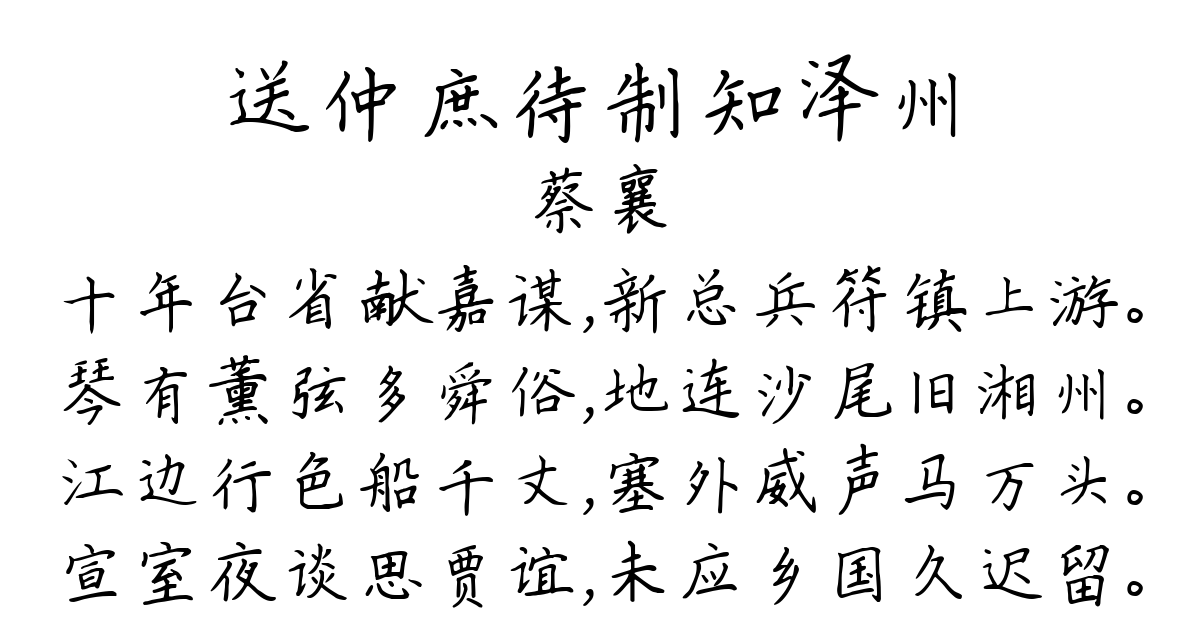 送仲庶待制知泽州
蔡襄
十年台省献嘉谋,新总兵符镇上游。
琴有薰弦多舜俗,地连沙尾旧湘州。
江边行色船千丈,塞外威声马万头。
宣室夜谈思贾谊,未应乡国久迟留。